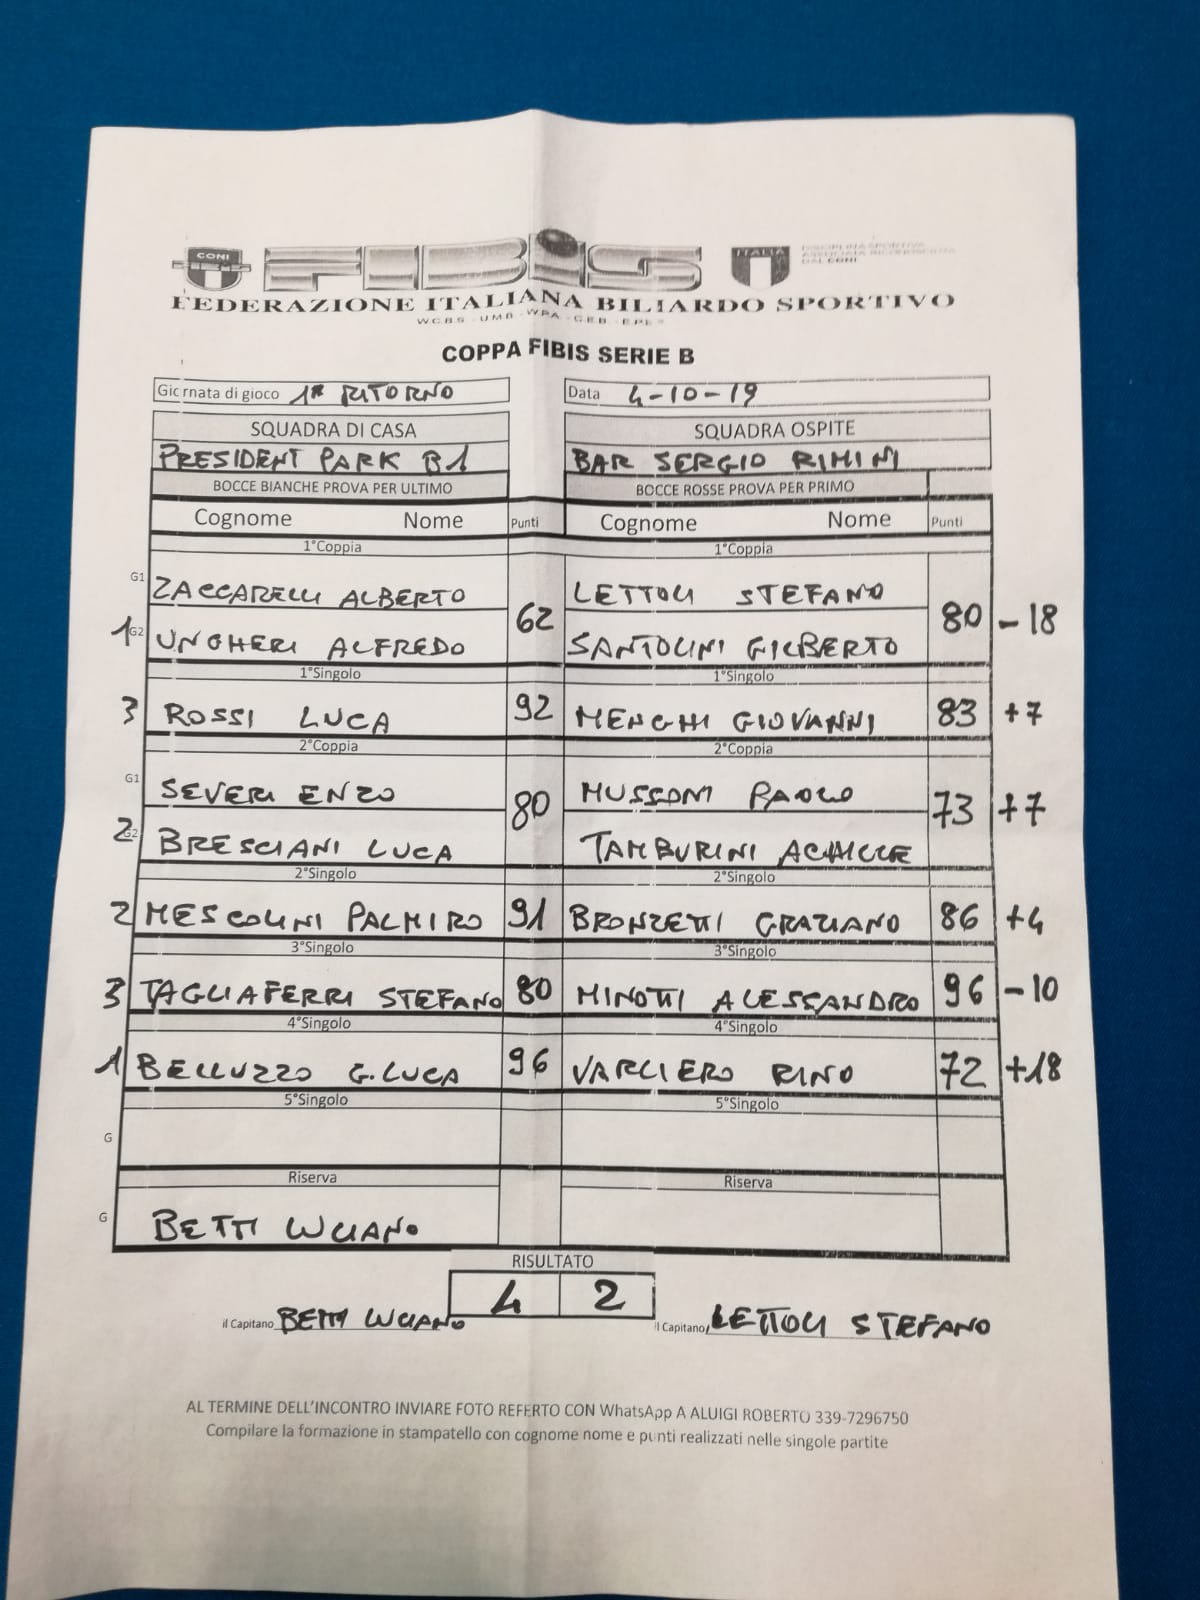 CONI
FIBIS
ITALIA
DISCIPLINA SPORTIVA
ASSOCIATA RICONOSCIUTA
DAL CONI
FEDERAZIONE ITALIANA BILIARDO SPORTIVO
W.C.B.S - U.M.B - W.P.A - C.E.B - E.P.B.F
COPPA FIBIS SERIE B
Giornata di gioco 1ª RITORNO Data 4-10-19
SQUADRA DI CASA SQUADRA OSPITE
PRESIDENT PARK B1 BAR SERGIO RIMINI
BOCCE BIANCHE PROVA PER ULTIMO BOCCE ROSSE PROVA PER PRIMO
Cognome Nome Punti Cognome Nome Punti
1°Coppia 1°Coppia
G1 ZACCARELLI ALBERTO LETTOLI STEFANO
62 80 -18
1 G2 UNGHERI ALFREDO SANTOLINI GILBERTO
1°Singolo 1°Singolo
3 ROSSI LUCA 92 MENGHI GIOVANNI 83 +7
2°Coppia 2°Coppia
G1 SEVERI ENZO MUSSONI PAOLO
80 73 +7
2 G2 BRESCIANI LUCA TAMBURINI ACHILLE
2°Singolo 2°Singolo
2 MESCOLINI PALMIRO 91 BRONZETTI GRAZIANO 86 +4
3°Singolo 3°Singolo
3 TAGLIAFERRI STEFANO 80 MINOTTI ALESSANDRO 96 -10
4°Singolo 4°Singolo
1 BELLUZZO G.LUCA 96 VARLIERO RINO 72 +18
5°Singolo 5°Singolo
G
Riserva Riserva
G BETTI LUCIANO
RISULTATO
4 2
il Capitano BETTI LUCIANO il Capitano LETTOLI STEFANO
AL TERMINE DELL'INCONTRO INVIARE FOTO REFERTO CON WhatsApp A ALUIGI ROBERTO 339-7296750
Compilare la formazione in stampatello con cognome nome e punti realizzati nelle singole partite